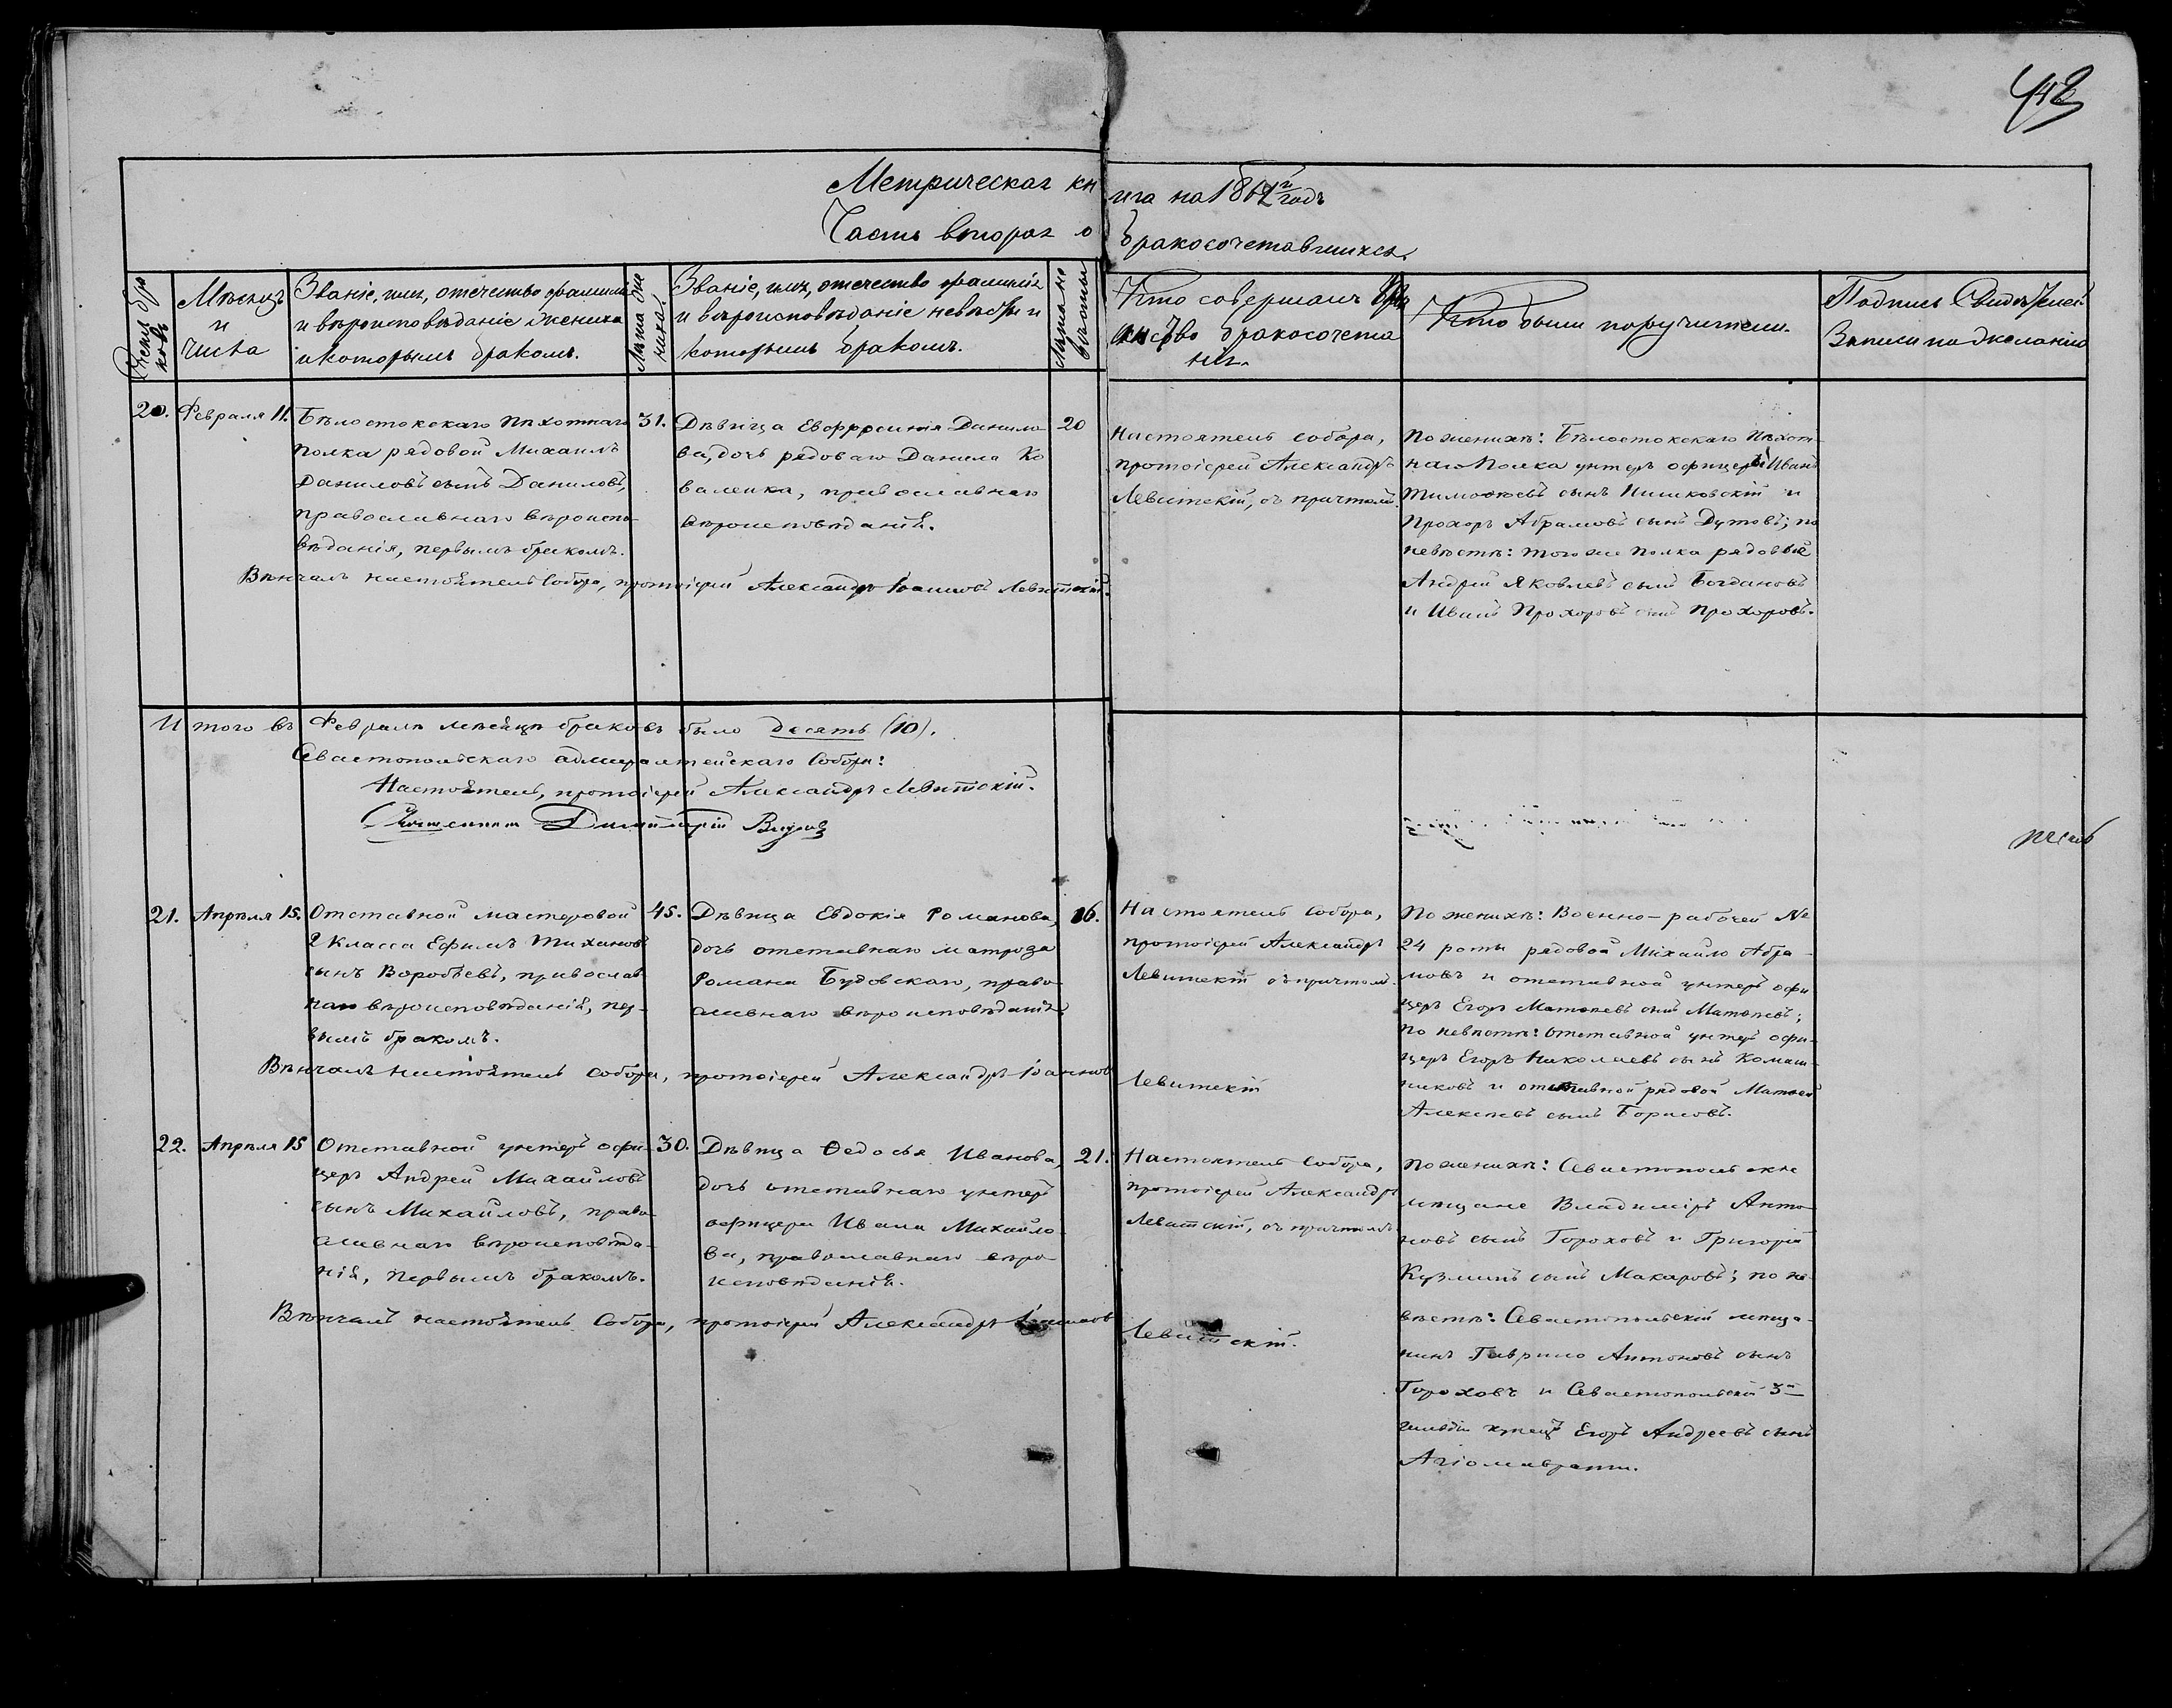 443
Метрическая книга на 1862 г годъ
Часть вторая о бракосочетавшихся.
Счетъ браковъ
Мѣсяцъ и числа
Званіе, имя, отчество фамилія
и вѣроисповѣданіе жениха
и которымъ бракомъ.
Лѣта жениха.
Званіе, имя, отчество фамилія
и вѣроисповѣданіе невѣсты и
которымъ бракомъ.
Лѣта невѣсты
Кто совершалъ
бракосочета
нія.
Кто были поручители.
Подпись Свидѣтелей
Записи по желанію
20.
Февраля 11.
Бѣлостокскаго Пѣхотнаго
полка рядовой Михаилъ
Даниловъ сынъ Даниловъ,
православнаго вѣроиспо-
вѣданія, первымъ бракомъ.
31.
Дѣвица Евфросинія Данило-
ва, дочь рядоваго Данила Ко
валенка, православнаго
вѣроисповѣданія.
20
Настоятель собора,
протоіерей Александръ
Левитскій, съ причтомъ.
По женихѣ: Бѣлостокскаго Пѣхот-
наго Полка унтеръ офицеры Иванъ
Тимофеевъ сынъ Нишковскій и
Прохоръ Абрамовъ сынъ Дутовъ; по
невѣстѣ: того же Полка рядовые
Андрей Яковлевъ сынъ Богдановъ
и Иванъ Прохоровъ сынъ Прохоровъ.
Вѣнчалъ настоятель Собора, протоіерей Александръ Іоанновъ Левитскій.
Итого въ Февралѣ мѣсяцѣ браковъ было десять (10).
Севастопольскаго адмиралтейскаго Собора:
Настоятель, протоіерей Александръ Левитскій.
Димитрій
21.
Апрѣля 15.
Отставной мастеровой
2 класса Ефимъ Тихановъ
сынъ Воробьевъ, православ-
наго вѣроисповѣданія, пер-
вымъ бракомъ.
45.
Дѣвица Евдокія Романова,
дочь отставнаго матроза
Романа Будовскаго, право-
славнаго вѣроисповѣданія
16.
Настоятель Собора,
протоіерей Александръ
Левитскій съ причтомъ.
По женихѣ: Военно-рабочей №
24 роты рядовой Михайло Абра-
мовъ и отставной унтеръ офи
церъ Егоръ Матвѣевъ сынъ Матвѣевъ;
по невѣстѣ: отставной унтеръ офи-
церъ Егоръ Николаевъ сынъ Комаш-
никовъ и отставной рядовой Матвей
Алексѣевъ сынъ Борисовъ.
Вѣнчалъ настоятель Собора, протоіерей Александръ Іоанновъ Левитскій
22.
Апрѣля 15
Отставной унтеръ офи-
церъ Андрей Михайловъ
сынъ Михайловъ, право-
славнаго вѣроисповѣда-
нія, первымъ бракомъ.
30.
Дѣвица Ѳедосья Иванова,
дочь отставнаго унтеръ
офицера Ивана Михайло-
ва, православнаго вѣро-
исповѣданія.
21.
Настоятель Собора,
протоіерей Александръ
Левитскій, съ причтомъ
По женихѣ: Севастопольскіе
мѣщане Владиміръ Анто-
новъ сынъ Гороховъ и Григорій
Кузминъ сынъ Макаровъ; по не-
вѣстѣ: Севастопольскій мѣща-
нинъ Гаврило Антоновъ сынъ
Гороховъ и Севастопольскій 3й
гильдіи купецъ Егоръ Андреевъ сынъ
Агіомаврати.
Вѣнчалъ настоятель Собора, протоіерей Александръ Іоанновъ Левитскій.